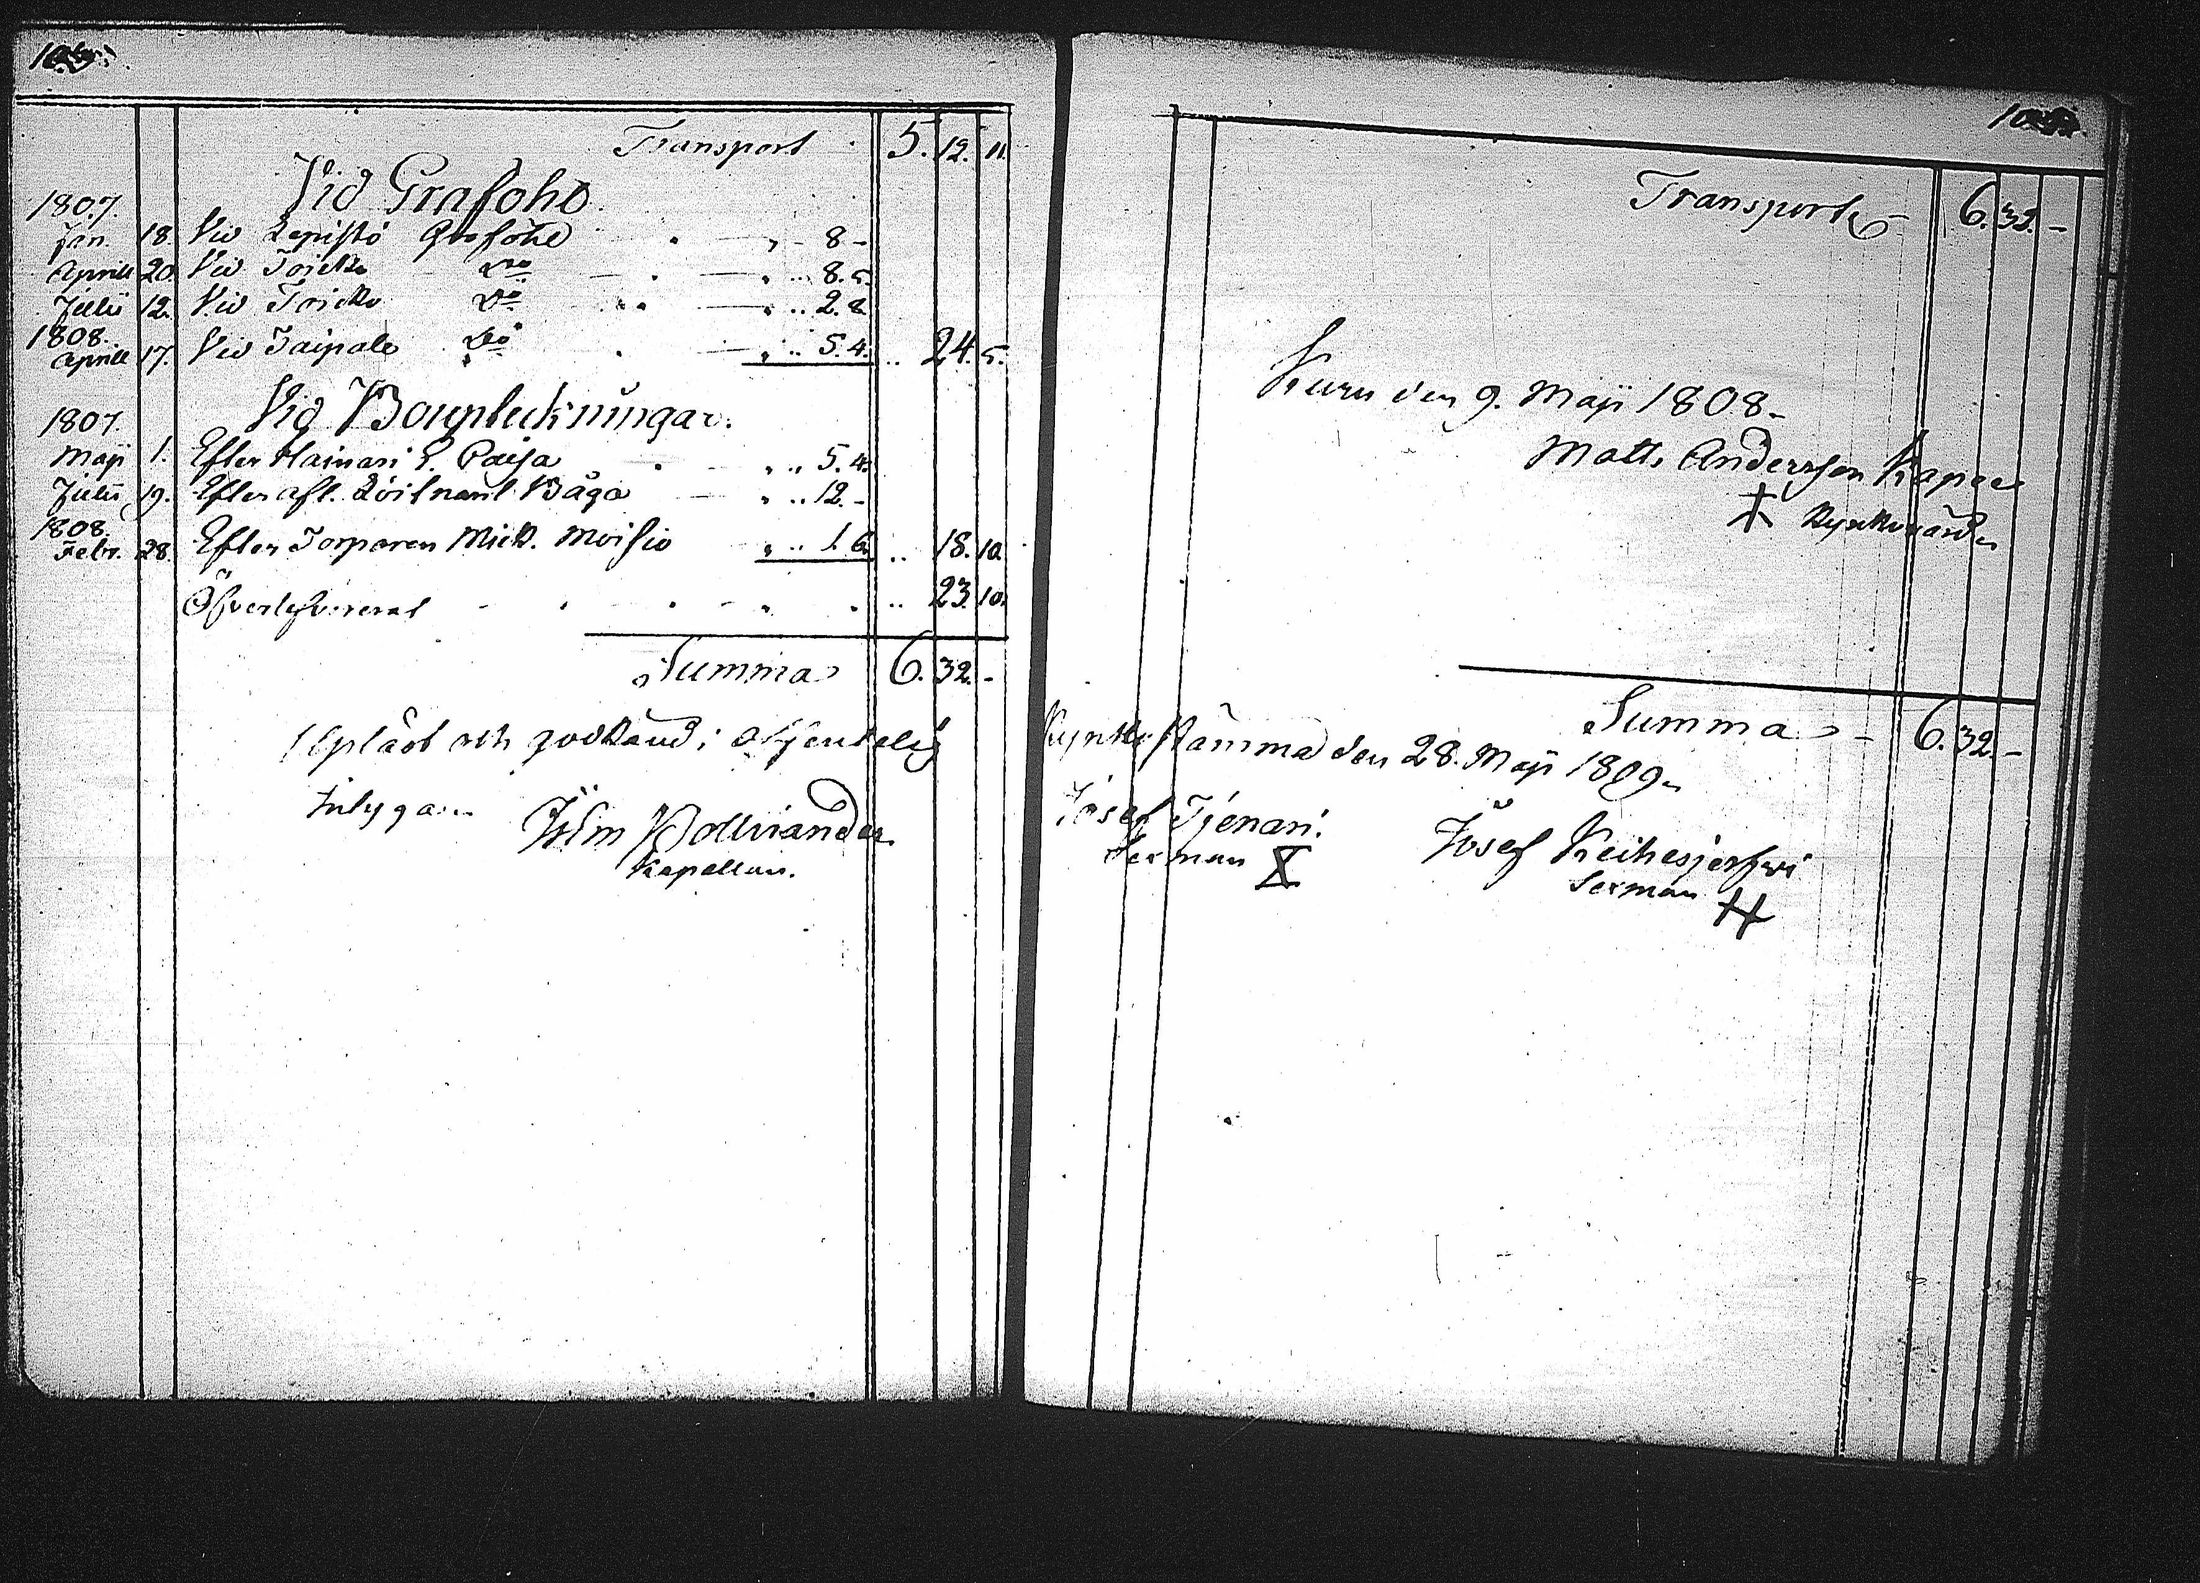 Transport 5. 12. 11.
Vid Graföhl.
1807.
Jan. 18. Vid Lepistö Graföhl „ - 8 -
Aprill 20. Vid Toickо d:o „ .. 8. 5.
Julii 12. Vid Toicko d:o „ .. 2. 8.
1808.
Aprill 17. Vid Taipale d:o „ .. 5. 4. .. 24. 5.
Vid Boupteckningar.
1807.
Maji 1. Efter Hainari E. Paisa „ .. 5. 4.
Julii 19. Efter afl. Löitnant Båga „ .. 12. -
1808.
Febr. 28. Efter Torparen Mick. Moisio „ .. 1. 6. .. 18. 10.
Öfverlefvererat .. 23. 10.
Summa 6. 32. -
Upläst och godkänd i offentelig
intygar.
Wollviander
Kapellan.
Transport 6. 32. -
Kuru den 9. Maji 1808.
Matts Andersson Kapee
Kyrkovärd
Summa - 6. 32. -
Kyrko stämma den 28. Maji 1809.
Josef Tjenari.
Sexman X
Josef Keihesjerfwi
Sexman